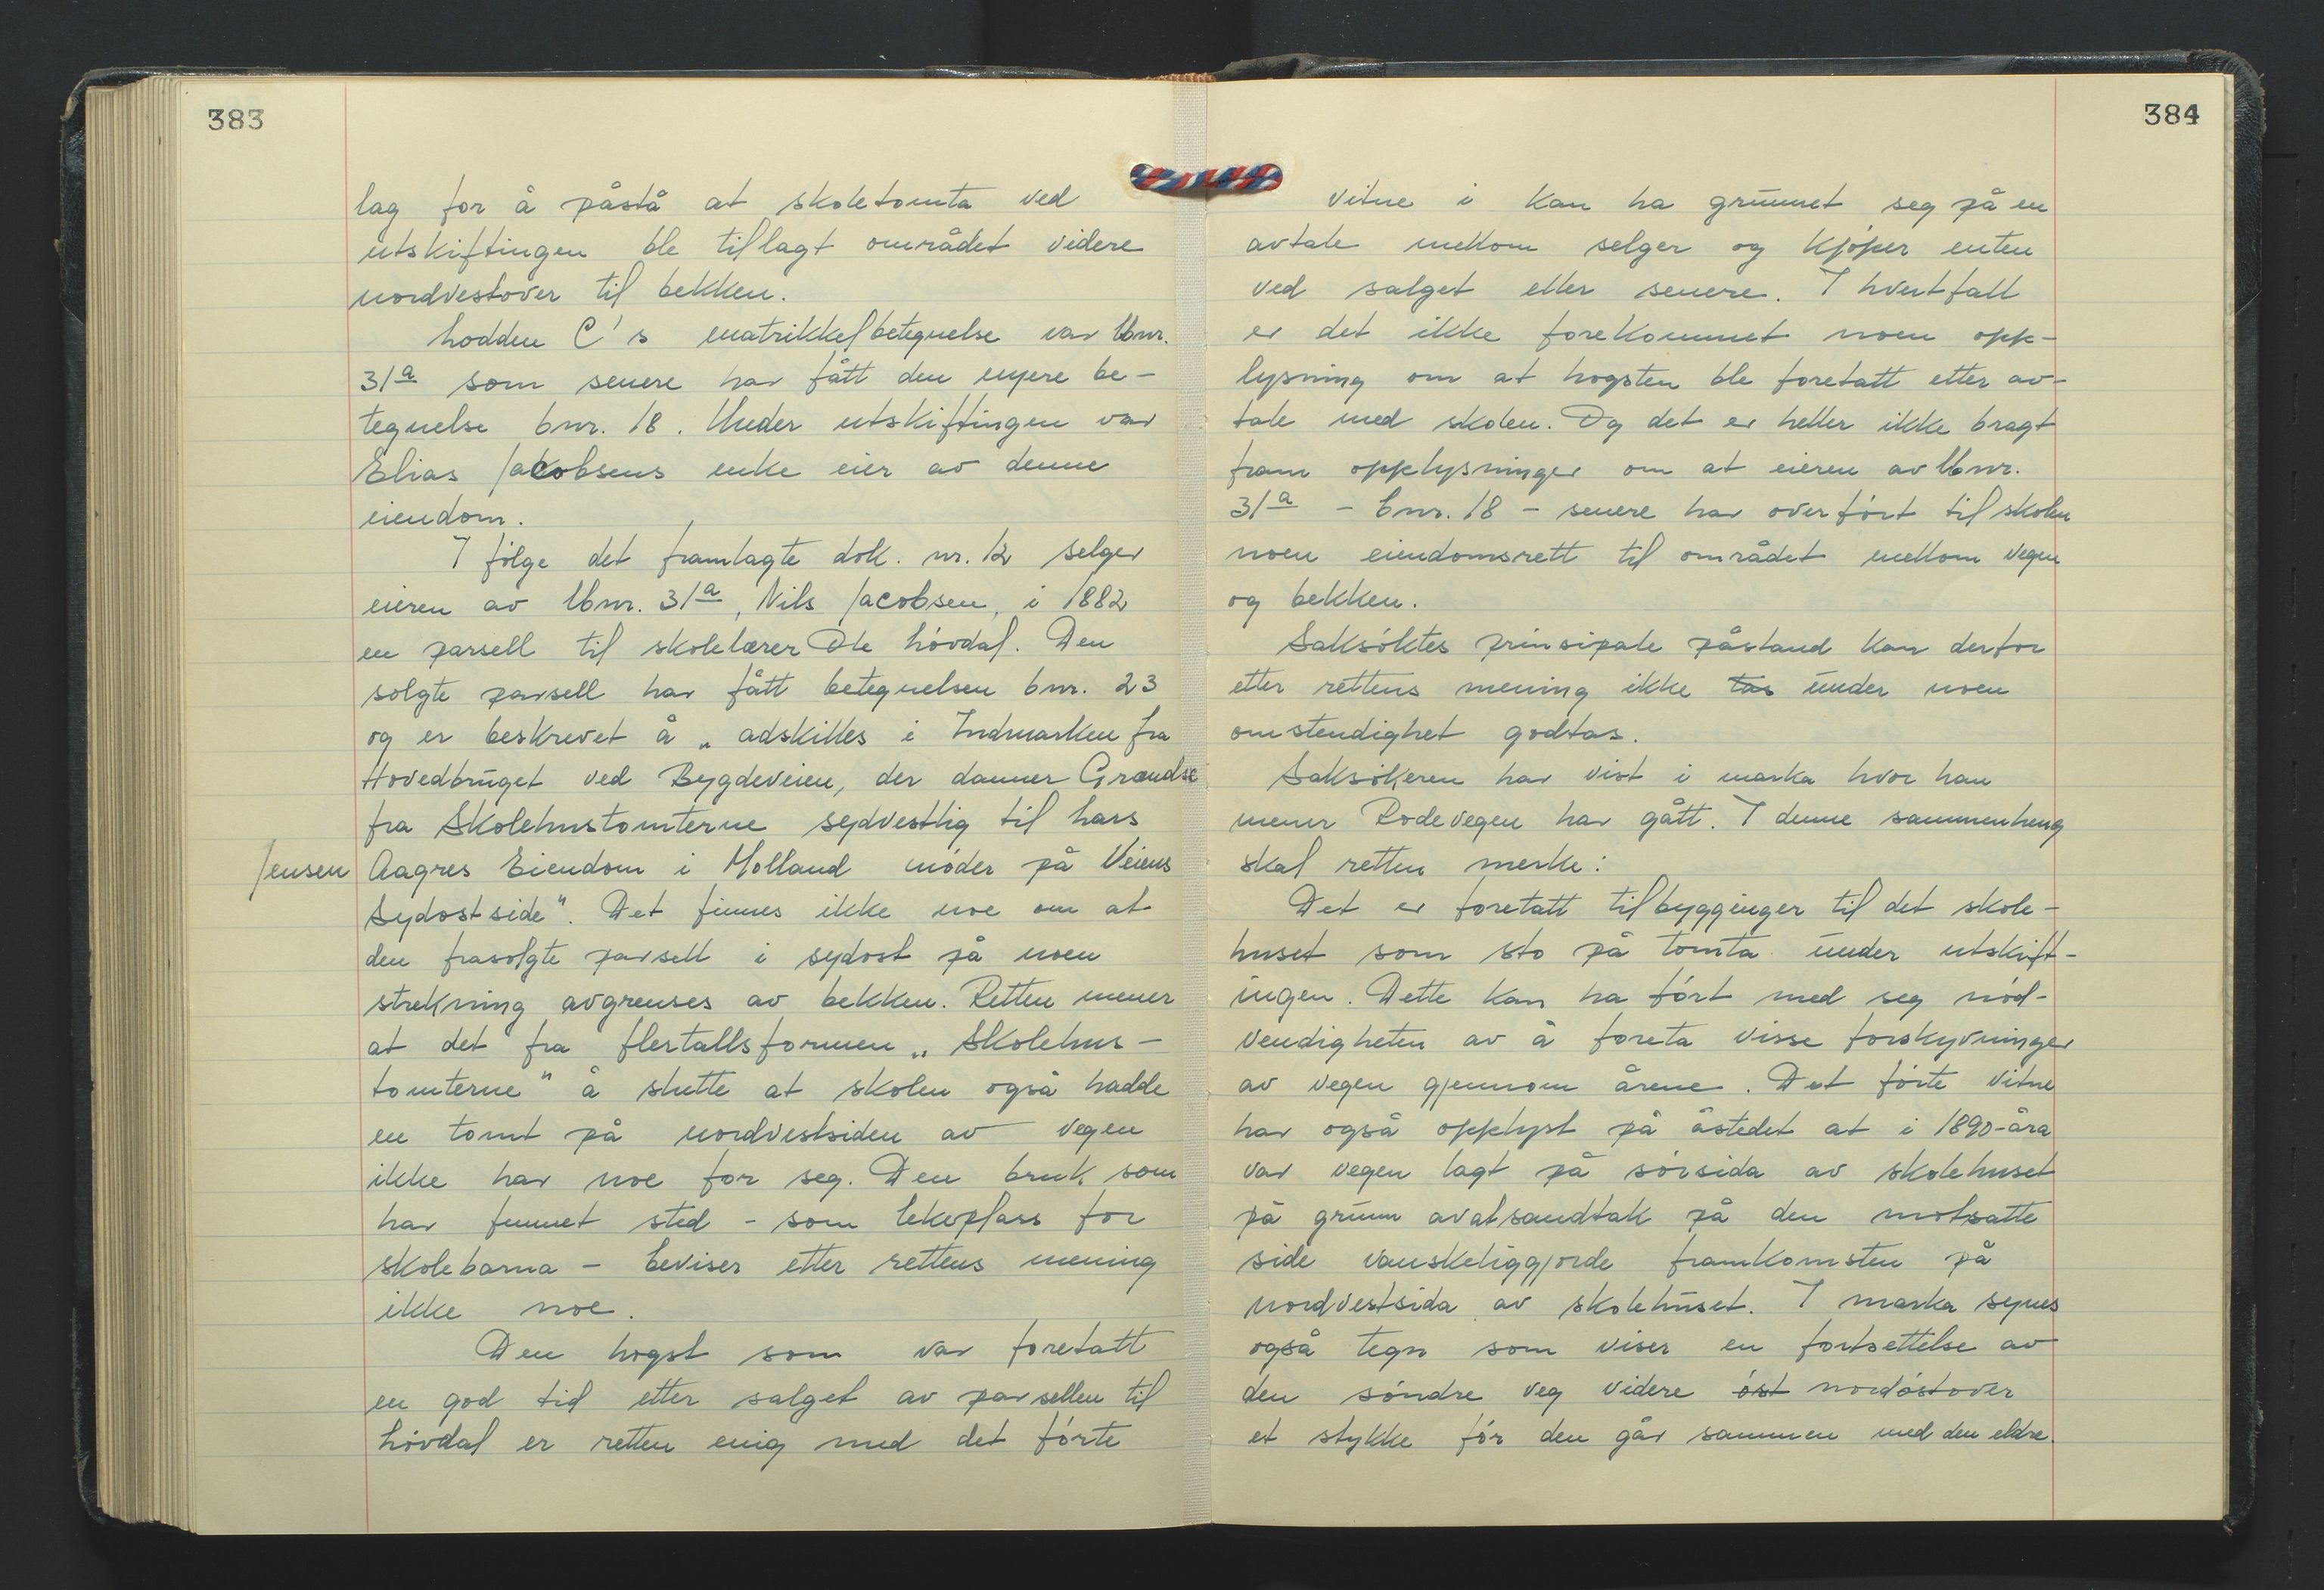 383
lag for å påstå at skoletomta ved
utskiftingen ble tillagt området videre
nordvestover til bekken.
Lodden C's matrikkelbetegnelse var lbnr.
31a som senere har fått den nyere be-
tegnelse bnr. 18. Under utskiftingen var
Elias Jacobsens enke eier av denne
eiendom.
I følge det framlagte dok. nr. 12 selger
eieren av lbnr. 31a, Nils Jacobsen, i 1882
en parsell til skolelærer Ole Løvdal. Den
solgte parsell har fått betegnelsen bnr. 23
og er beskrevet å „adskilles i Indmarken fra
Hovedbruget ved Bygdeveien, der danner Grændse
fra Skolehustomterne sydvestlig til Lars
Jensen Aagres Eiendom i Molland møder på Veiens
Sydostside". Det finnes ikke noe om at
den frasolgte parsell i sydost på noen
strekning avgrenses av bekken. Retten mener
at det fra flertallsformen „Skolehus-
tomterne" å slutte at skolen også hadde
en tomt på nordvestsiden av vegen
ikke har noe for seg. Den bruk som
har funnet sted - som lekeplass for
skolebarna - beviser etter rettens mening
ikke noe.
Den hogst som var foretatt
en god tid etter salget av parsellen til
Løvdal er retten enig med det førte
384
vitne i kan ha grunnet seg på en
avtale mellom selger og kjøper enten
ved salget eller senere. I hvert fall
er det ikke forekommet noen opp-
lysning om at hogsten ble foretatt etter av-
tale med skolen. Og det er heller ikke bragt
fram opplysninger om at eieren av lbnr.
31a - bnr. 18 - senere har overført til skolen
noen eiendomsrett til området mellom vegen
og bekken.
Saksøktes prinsipale påstand kan derfor
etter rettens mening ikke tas under noen
omstendighet godtas.
Saksøkeren har vist i marka hvor han
mener Rodevegen har gått. I denne sammenheng
skal retten merke:
Det er foretatt tilbygginger til det skole-
huset som sto på tomta under utskift-
ingen. Dette kan ha ført med seg nød-
vendigheten av å foreta visse forskyvninger
av vegen gjennom årene. Det førte vitne
har også opplyst på åstedet at i 1890-åra
var vegen lagt på sørsida av skolehuset
på grunn av at sandtak på den motsatte
side vanskeliggjorde framkomsten på
nordvestsida av skolehuset. I marka synes
også tegn som viser en fortsettelse av
den søndre veg videre øst nordøstover
et stykke før den går sammen med den eldre.